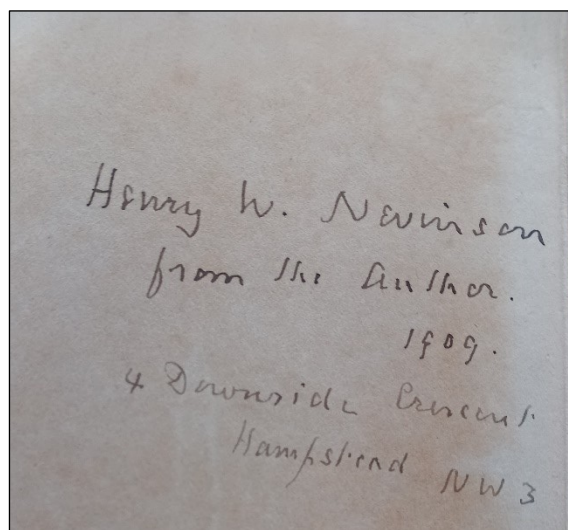 Henry W. Nevinson
from the Author.
1909.
4 Downside Crescent
Hampstead NW3